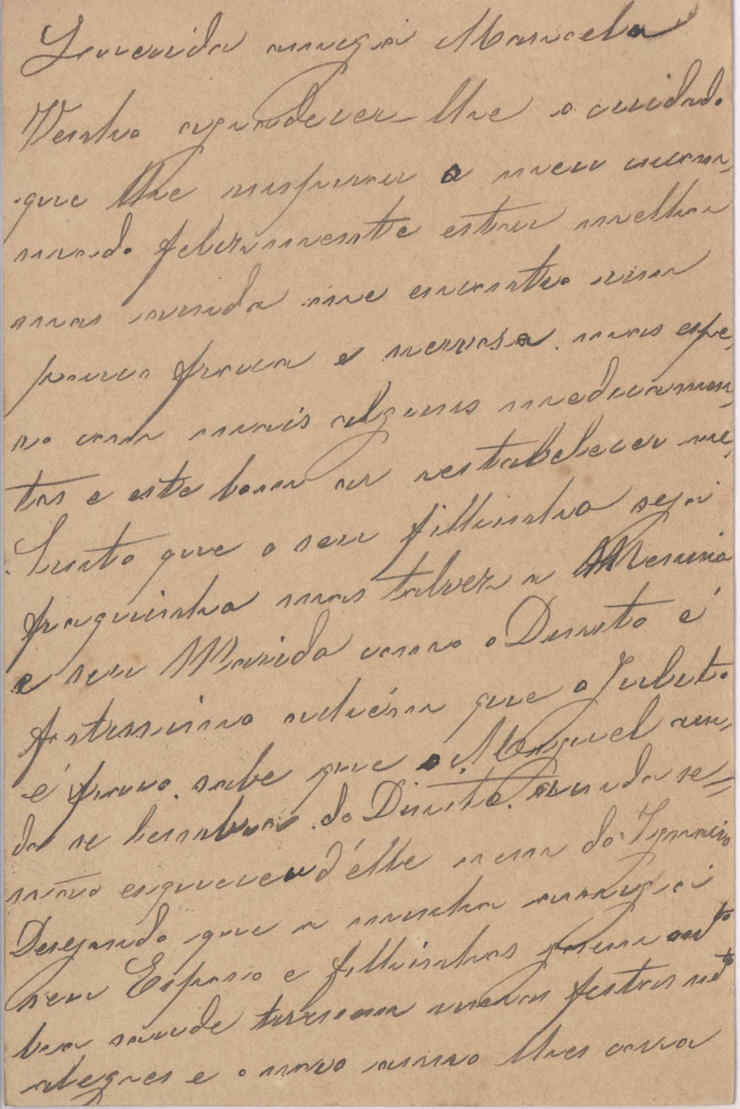 Querida amiga Marcela
Venho agradecer-lhe o cuidado
que lhe inspirou o meu incom,
modo felizmente estou melhor
mas ainda me encontro um
pouco fraca e nervosa. mas espe,
ro com mais alguns medicamen,
tos e este bom ar restabelecer me,
Sinto que o seu filhinho seja
fraquinho mas talvez a Menina
e seu Marido como o Dinito é
fortissimo achem que o Julito
é fraco. sabe que o Miguel ain,
da se lembra do Dinito. ainda se
não esqueceu d'elle nem do Ignacio
Desejando que a minha amiga
seu Esposo e filhinhos gosem
boa saude tivessem umas festas
alegres e o novo anno lhes corra